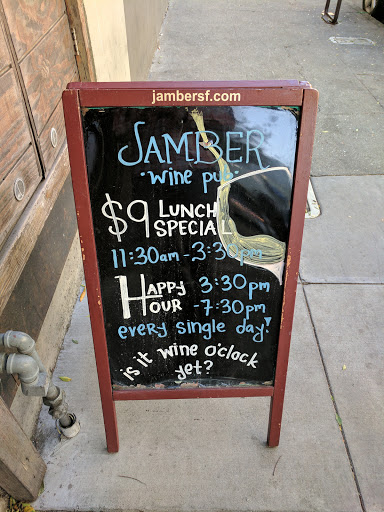 jambersf.com
JAMBER
·wine pub·
$9 LUNCH
SPECIAL
11:30am - 3:30pm
HAPPY 3:30pm
HOUR -7:30pm
every single day!
is it wine o'clock
yet?